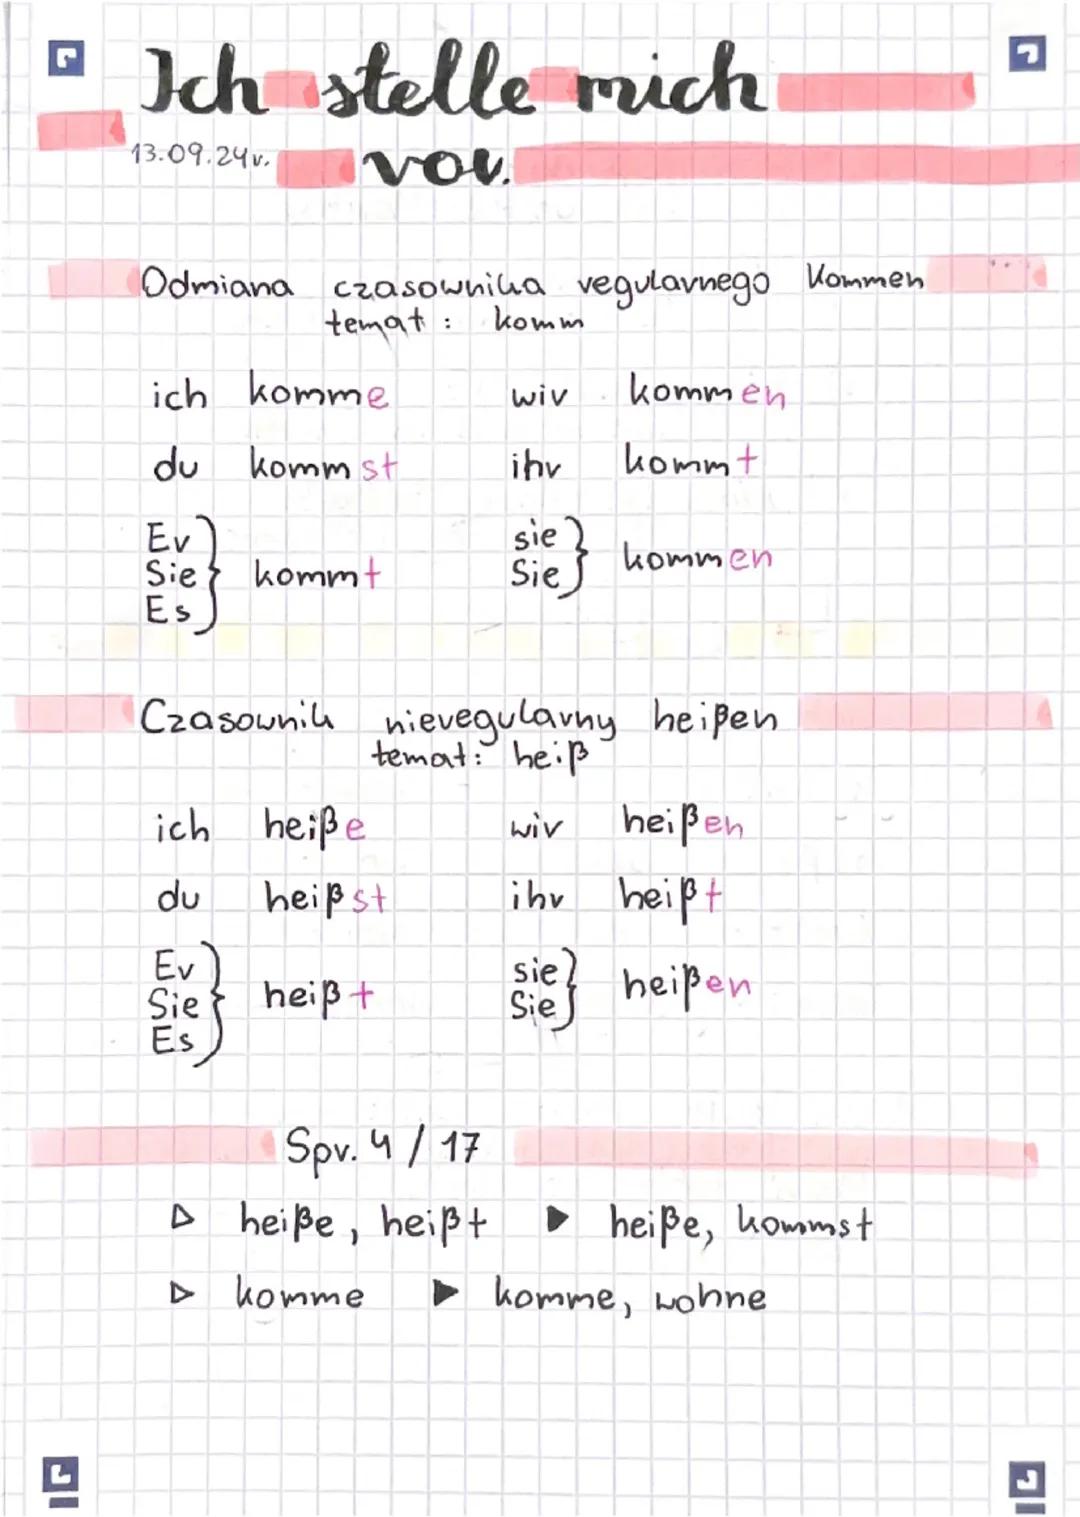 Ich stelle mich
13.09.24r. vor.
Odmiana czasownika regularnego kommen
temat: komm
ich komme wir kommen
du kommst ihr kommt
Er
Sie } kommt
Es
sie
Sie } kommen
Czasownik nieregularny heißen
temat: heiß
ich heiße wir heißen
du heißst ihr heißt
Er
Sie } heißt
Es
sie
Sie } heißen
Spr. 4 / 17
▷ heiße, heißt ▶ heiße, kommst
▷ komme ▶ komme, wohne